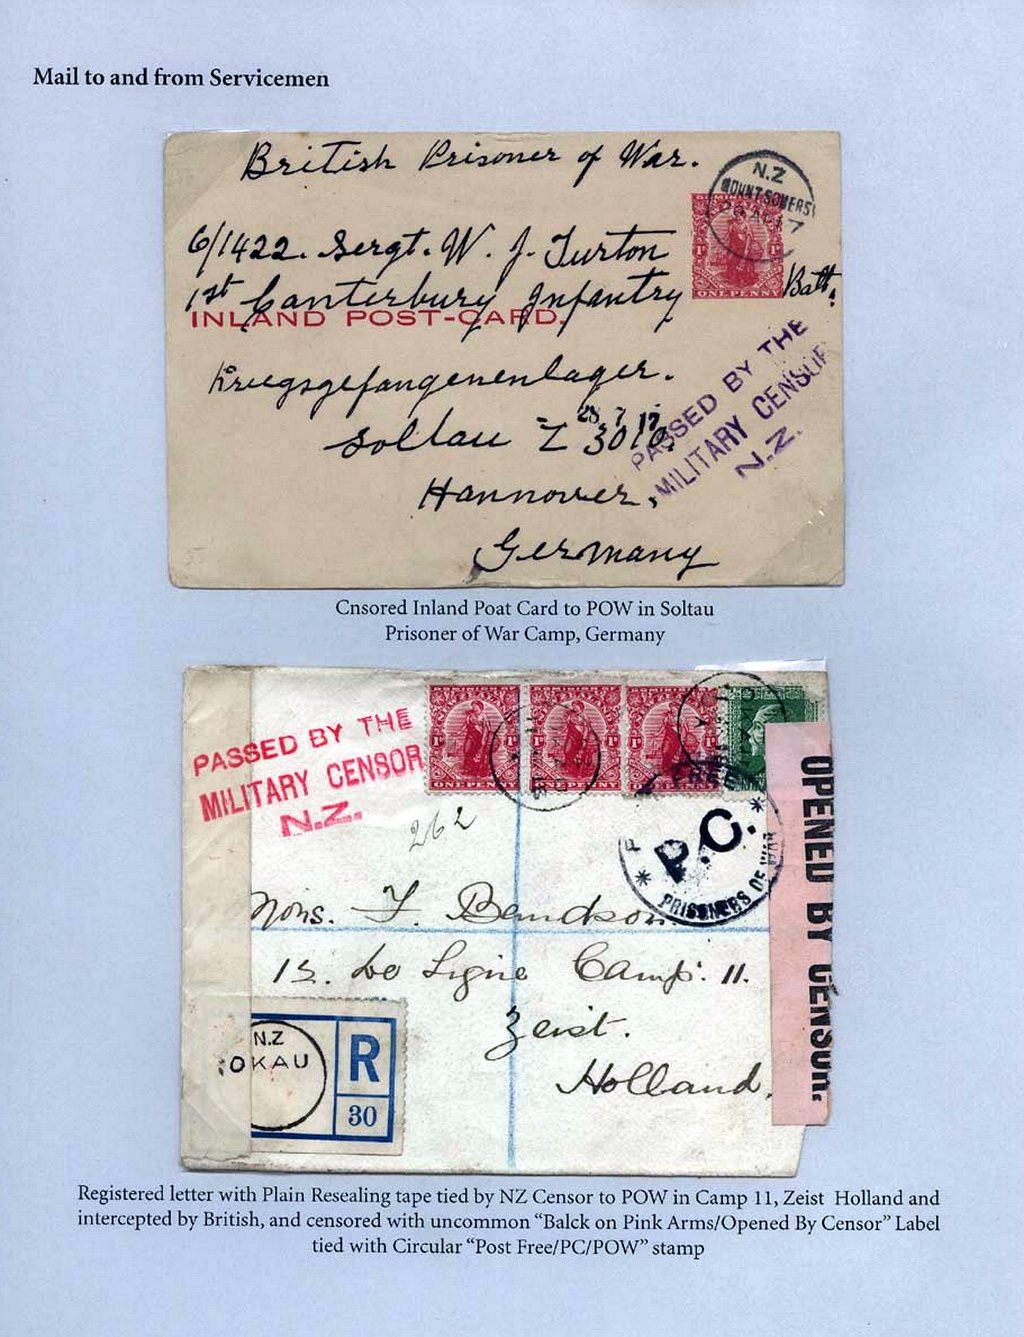 Mail to and from Servicemen
British Prisoner of War.
N.Z
MOUNT SOMERS
6/1422. Sergt. W. J. Turton
ONE PENNY
1st Canterbury Infantry Batt.
INLAND POST-CARD.
Kriegsgefangenenlager.
PASSED BY THE
MILITARY CENSOR
N.Z.
28 7 17
Soltau Z 3010.
Hannover,
Germany
Cnsored Inland Poat Card to POW in Soltau
Prisoner of War Camp, Germany
PASSED BY THE
MILITARY CENSOR
N.Z.
ONE PENNY
ONE PENNY
ONE PENNY
OPENED BY CENSOR.
FREE
P.C.
PRISONERS OF WAR
262
Mons. F. Bendkson
15. de Ligne Camp. 11.
Zeist.
Holland,
N.Z
OKAU
R
30
Registered letter with Plain Resealing tape tied by NZ Censor to POW in Camp 11, Zeist Holland and
intercepted by British, and censored with uncommon “Balck on Pink Arms/Opened By Censor” Label
tied with Circular “Post Free/PC/POW” stamp